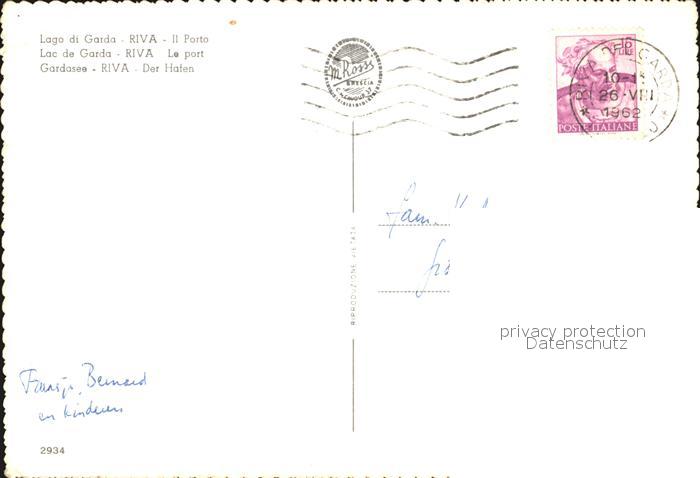 Lago di Garda - RIVA - Il Porto
Lac de Garda - RIVA Le port
Gardasee - RIVA - Der Hafen
Ross
BRESCIA
POSTE ITALIANE
RIVA DEL GARDA
26 VIII
1962
RIPRODUZIONE VIETATA
Fam.
privacy protection
Datenschutz
Bernard
en kinderen
2934